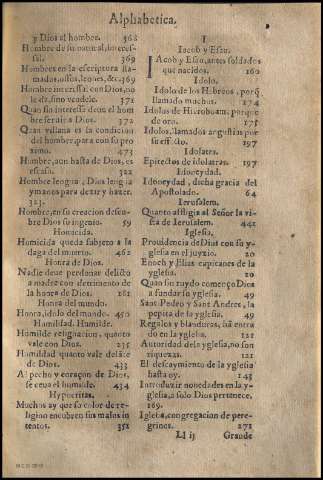 Alphabetica.
y Dios al hombre. 362
Hombre de su natural, interes-
sal. 369
Hombres en la escriptura lla-
mados, ossos, leones, &c. 369
Hombre interessal con Dios, no
le dá, sino vendele. 371
Quan sin interesse deue el hom
bre seruir a Dios. 372
Quan villana es la condicion
del hombre, para con su pro
ximo. 473
Hombre, aun hasta de Dios, es
escaso. 322
Hombre lengua, Dios lengua
y manos para dezir y hazer.
323.
Hombre, en su creacion descu-
bre Dios su ingenio. 59
Homicida.
Homicida queda subjeto a la
daga del muerto. 462
Honra de Dios.
Nadie deue perdonar delicto
a nadie con detrimento de
la honra de Dios. 261
Honra del mundo.
Honra, idolo del mundo. 450
Humildad. Humilde.
Humilde resignacion, quanto
vale con Dios. 235
Humildad quanto vale delãte
de Dios. 433
Al pecho y coraçon de Dios,
se ceua el humilde. 434
Hypocritas.
Muchos ay que so color de re-
ligion encubren sus malos in
tentos. 352
I
Iacob y Esau.
IAcob y Esau, antes soldados
que nacidos. 160
Idolo.
Idolo de los Hebreos, porq̃
llamado muchos. 174
Idolos de Hieroboam, porque
de oro. 175
Idolos, llamados angustias por
su efecto. 197
Idolatras.
Epitectos de idolatras. 197
Idoneydad.
Idoneydad, dicha gracia del
Apostolado. 64
Ierusalem.
Quanto afligia al Señor la vis-
ta de Ierusalem. 442
Iglesia.
Prouidencia de Dios con su y-
glesia en el juyzio. 20
Enoch y Elias capitanes de la
yglesia. 20
Quan sin ruydo començo Dios
a fundar su yglesia. 49
Sant Pedro y Sant Andres, la
pepita de la yglesia. 49
Regalos y blanduras, hã entra
do en la yglesia. 121
Autoridad de la yglesia, no son
riquezas. 121
El descaymiento de la yglesia
hasta oy. 145
Introduzir nouedades en la y-
glesia, a solo Dios pertenece.
169.
Iglesia, congregacion de pere-
grinos. 271
Ll ij Grande